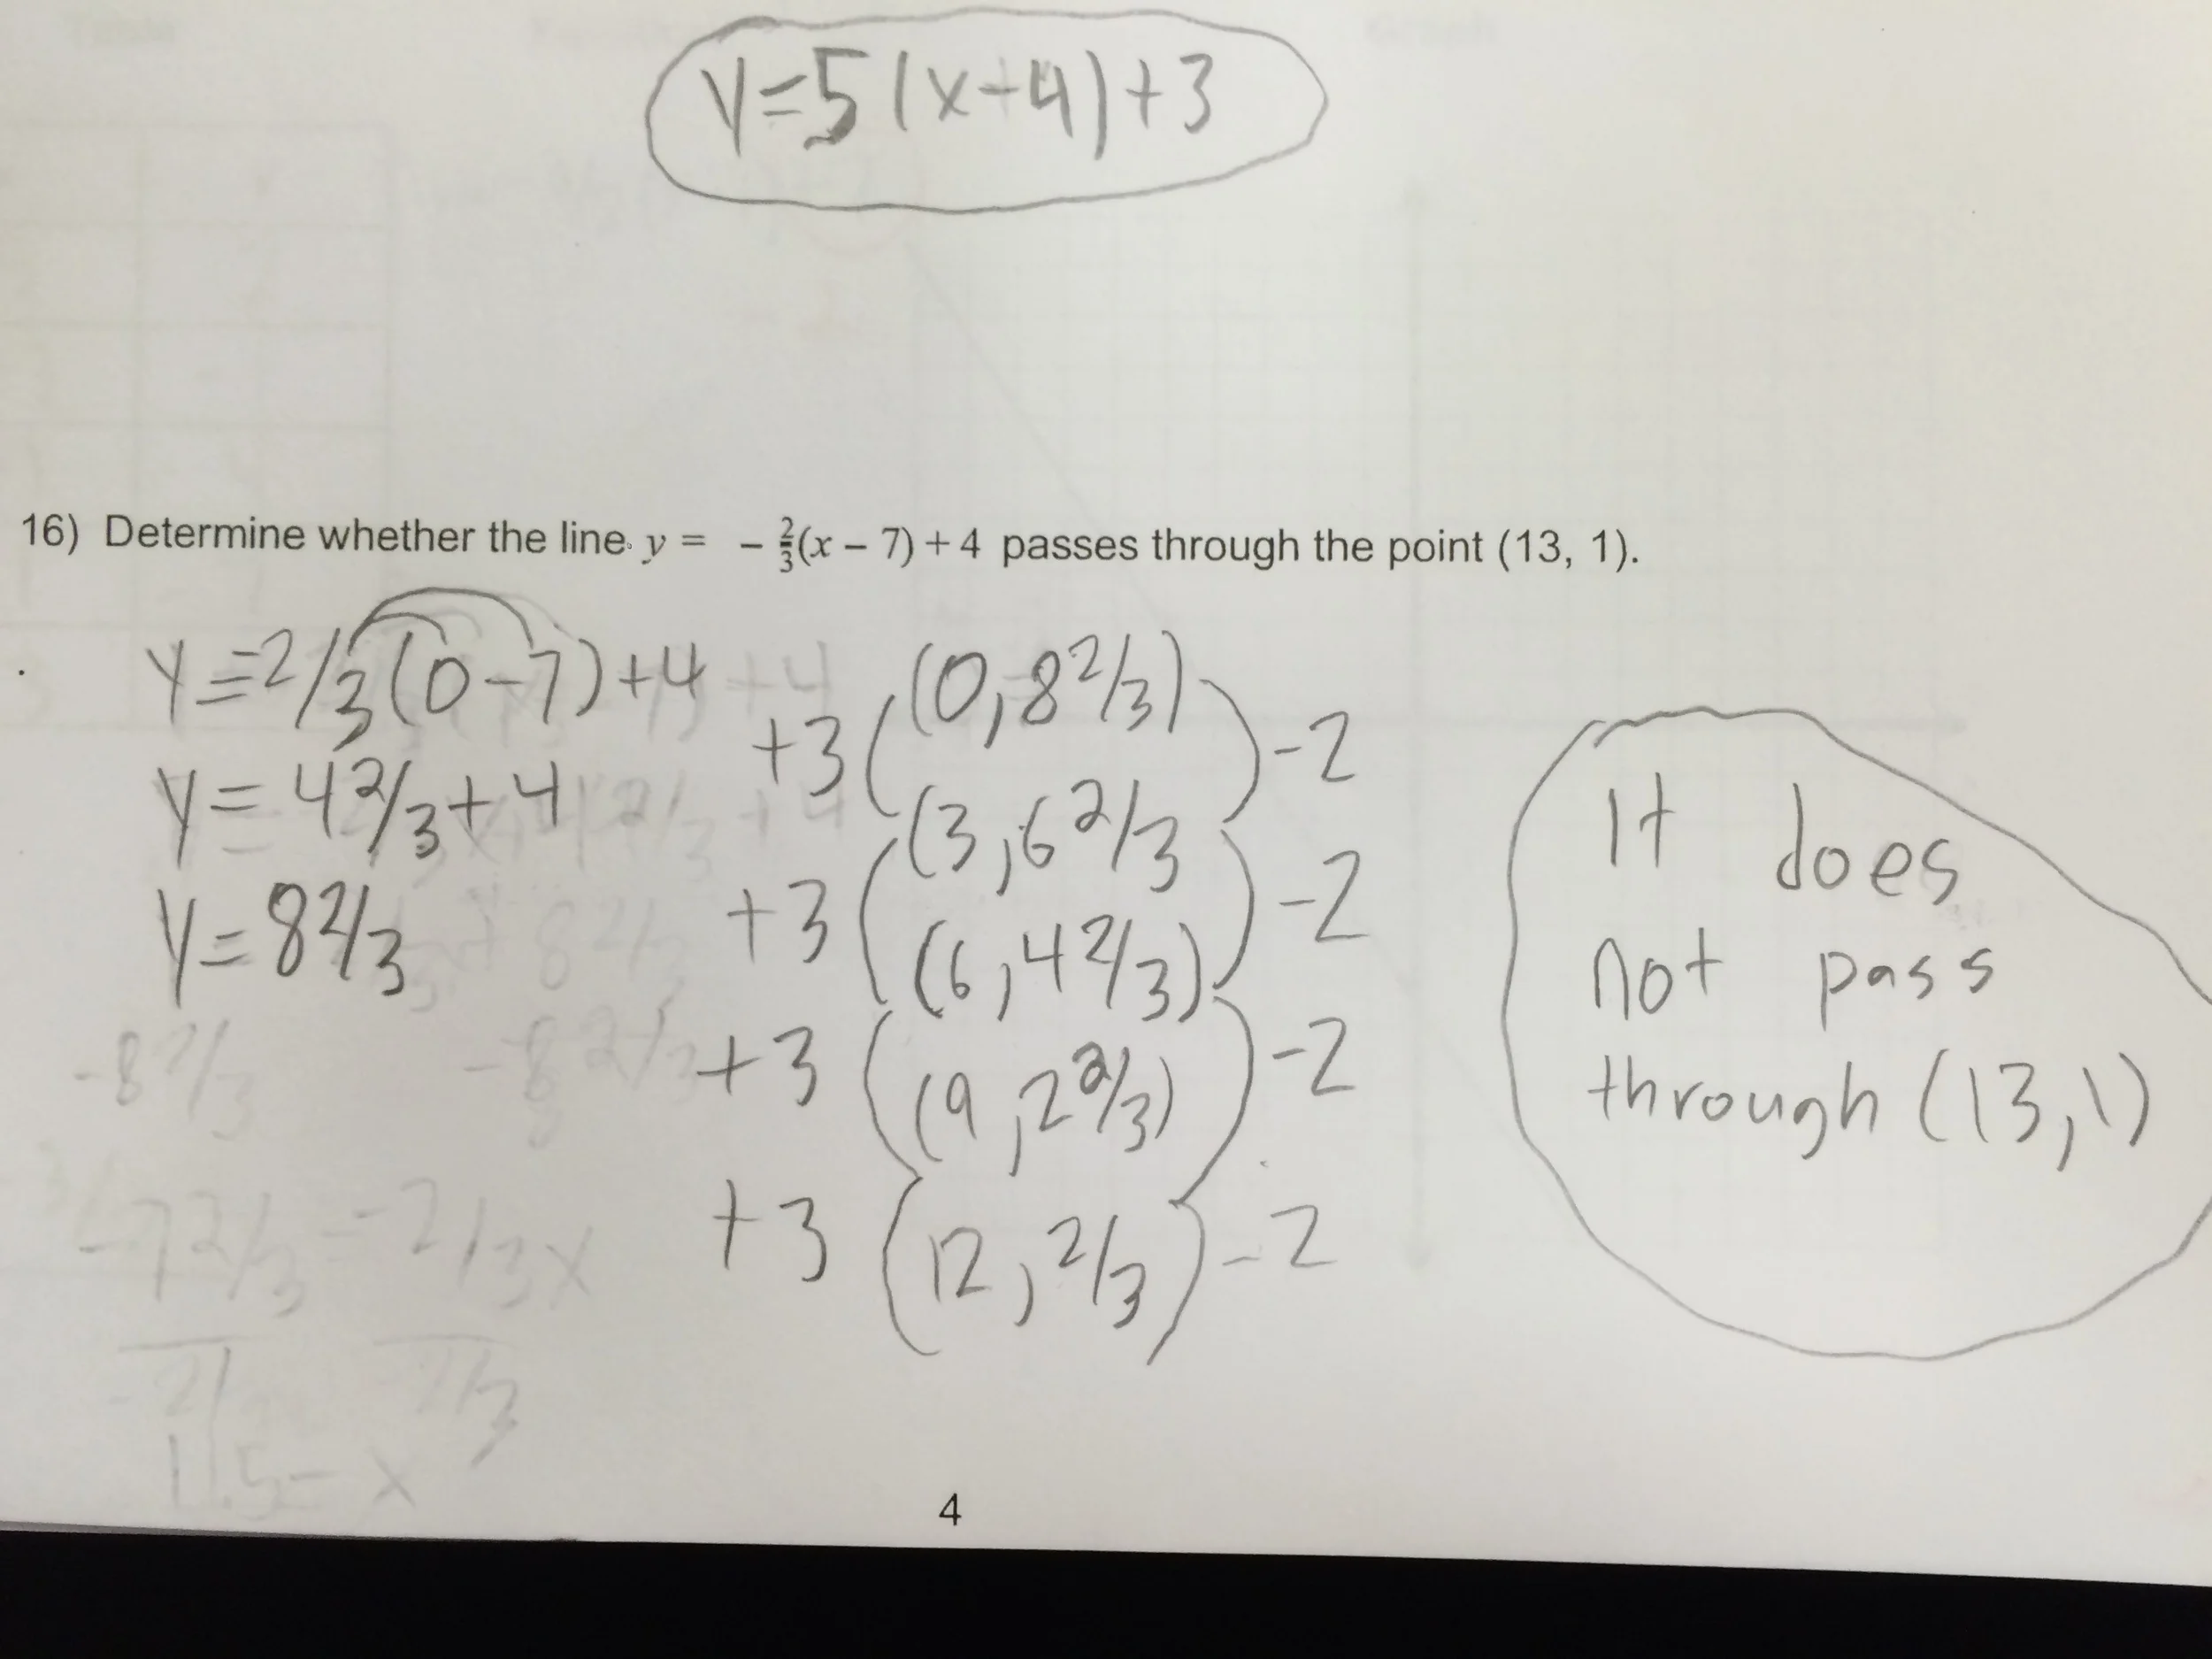 y=5(x+4)+3
16) Determine whether the line y = - 2/3(x - 7) + 4 passes through the point (13, 1).
y=-2/3(0-7)+4
y=4 2/3+4
y=8 2/3
(0,8 2/3)
+3 -2
(3,6 2/3
+3 -2
(6,4 2/3)
+3 -2
(9,2 2/3)
+3 -2
(12,2/3)
It does
not pass
through (13,1)
-8 2/3 -8 2/3
-7 2/3 = -2/3x
11.5=x
4